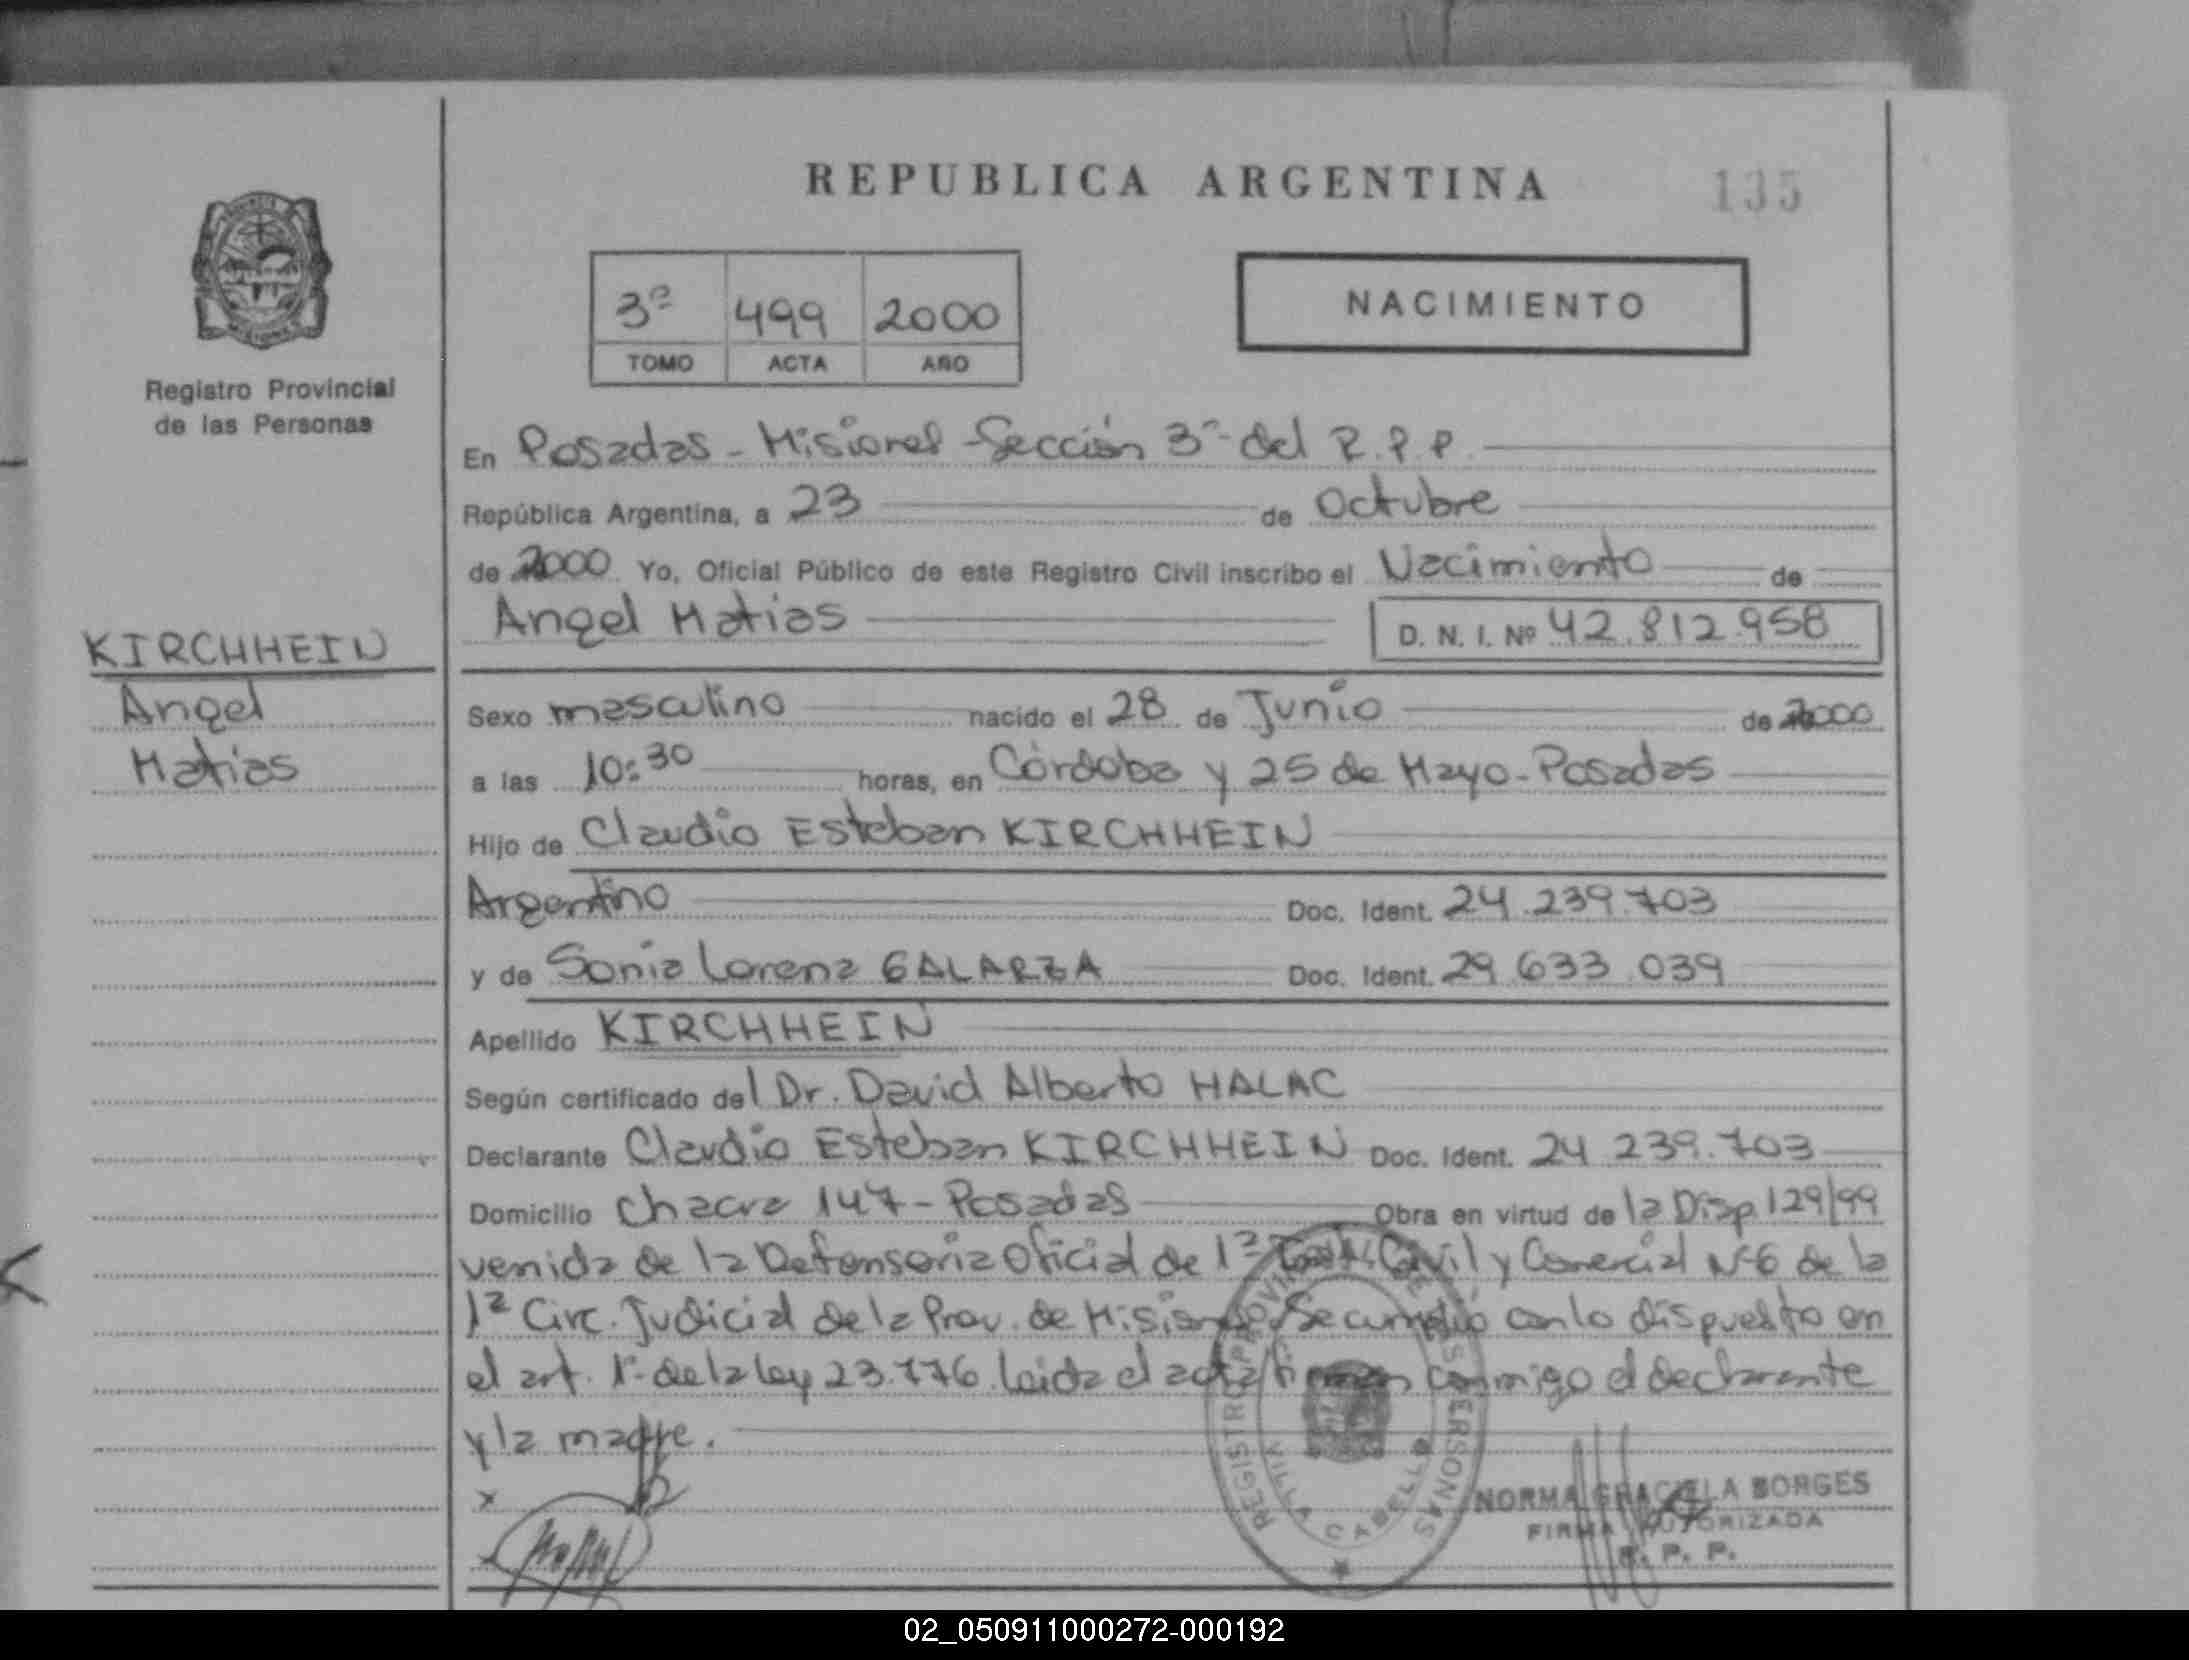 REPUBLICA ARGENTINA
135
3ª 499 2000
TOMO ACTA AÑO
NACIMIENTO
Registro Provincial
de las Personas
En Posadas - Misiones - Sección 3ª del R.P.P.
República Argentina, a 23 de Octubre
de 2000 Yo, Oficial Público de este Registro Civil inscribo el Nacimiento de
Angel Matias D. N. I. Nº 42.812.958
KIRCHHEIN
Angel
Matias
Sexo masculino nacido el 28 de Junio de 2000
a las 10:30 horas, en Córdoba y 25 de Mayo - Posadas
Hijo de Claudio Esteban KIRCHHEIN
Argentino Doc. Ident. 24.239.703
y de Sonia Lorena GALARZA Doc. Ident. 29.633.039
Apellido KIRCHHEIN
Según certificado del Dr. David Alberto HALAC
Declarante Claudio Esteban KIRCHHEIN Doc. Ident. 24.239.703
Domicilio Chacra 147 - Posadas Obra en virtud de la Disp. 129/99
venida de la Defensoria Oficial de 1ª Civil y Comercial Nº 6 de la
1ª Circ. Judicial de la Prov. de Misiones Se cumplió con lo dispuesto en
el art. 1º de la ley 23.776. Leida el acta firman conmigo el declarante
y la madre.
REGISTRO PROVINCIAL DE LAS PERSONAS
VILLA CABELLO
NORMA GRACIELA BORGES
FIRMA AUTORIZADA
R. P. P.
02_050911000272-000192